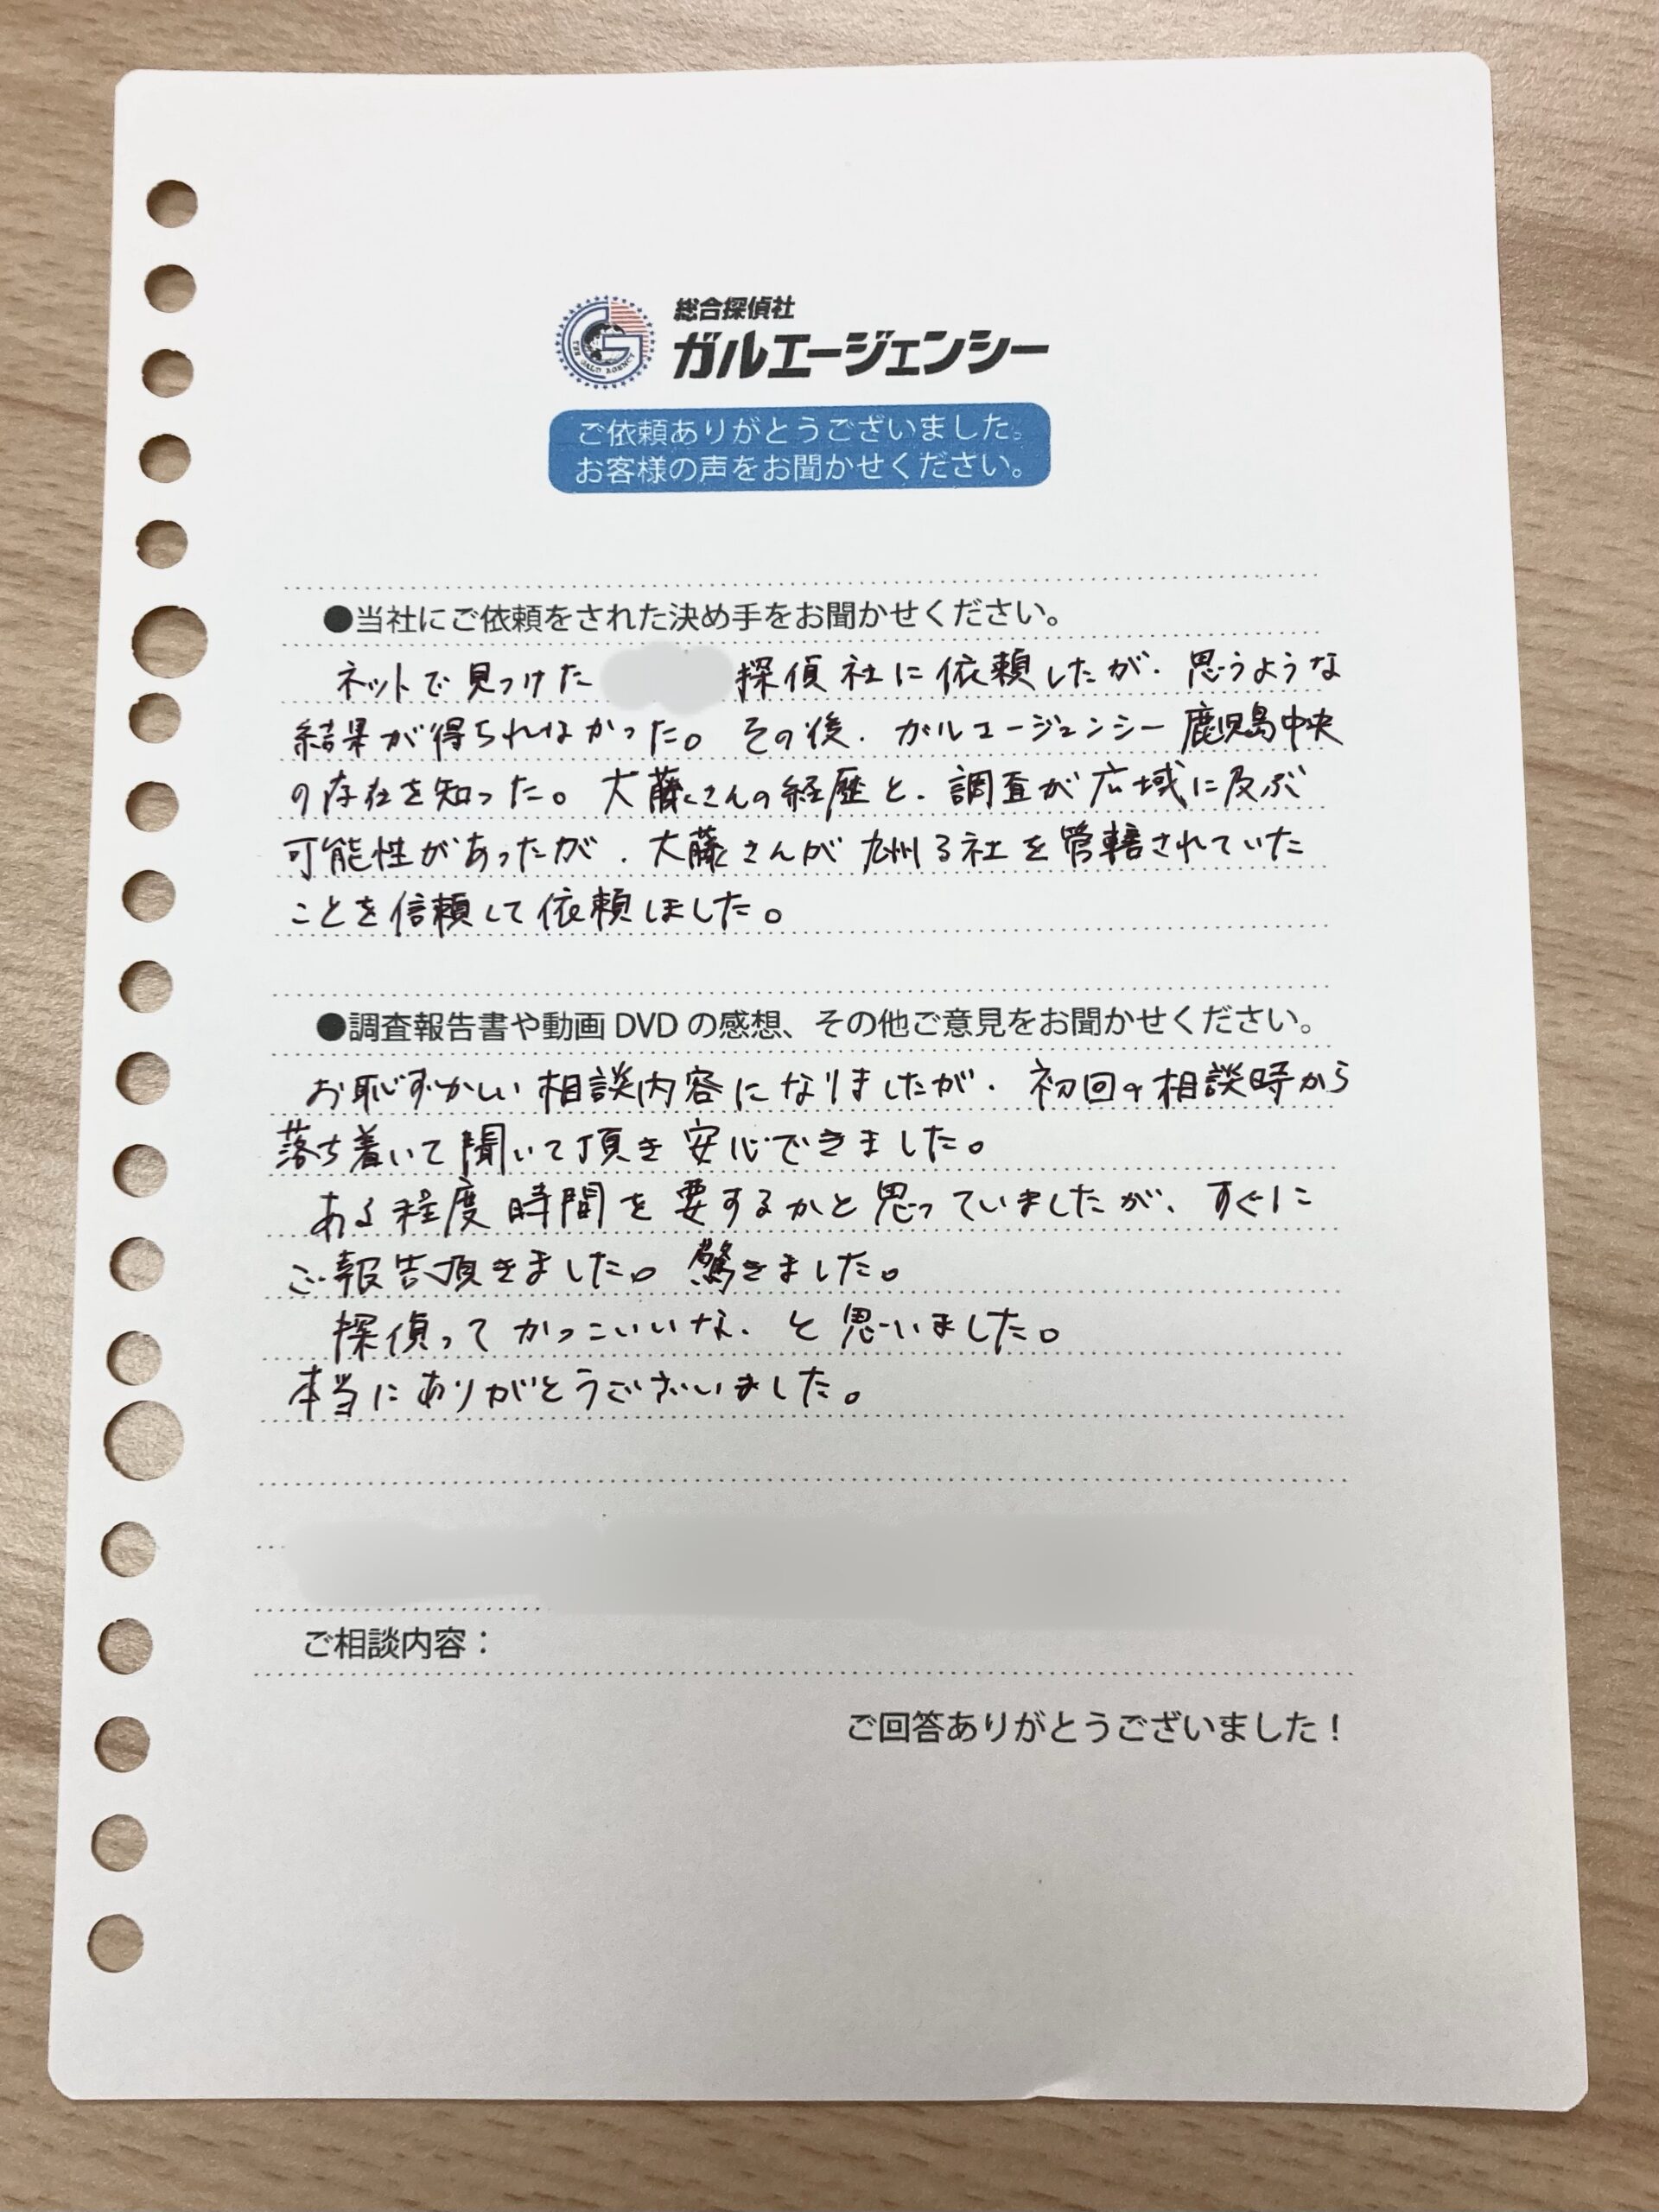 総合探偵社
ガルエージェンシー
THE GALU AGENCY
ご依頼ありがとうございました。
お客様の声をお聞かせください。
●当社にご依頼をされた決め手をお聞かせください。
ネットで見つけた 探偵社に依頼したが、思うような
結果が得られなかった。その後、ガルエージェンシー鹿児島中央
の存在を知った。大藤さんの経歴と、調査が広域に及ぶ
可能性があったが、大藤さんが九州3社を管轄されていた
ことを信頼して依頼しました。
●調査報告書や動画DVDの感想、その他ご意見をお聞かせください。
お恥ずかしい相談内容になりましたが、初回の相談時から
落ち着いて聞いて頂き安心できました。
ある程度時間を要するかと思っていましたが、すぐに
ご報告頂きました。驚きました。
探偵ってかっこいいな、と思いました。
本当にありがとうございました。
ご相談内容：
ご回答ありがとうございました！